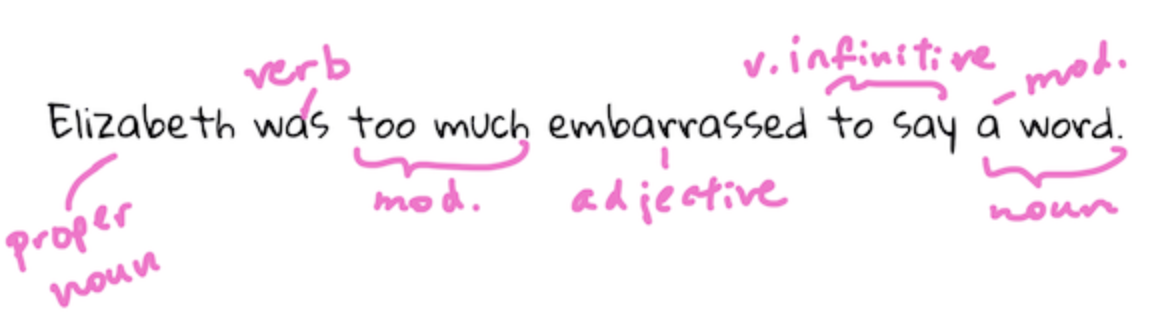 verb
v. infinitive
mod.
Elizabeth was too much embarrassed to say a word.
proper
noun
mod.
adjective
noun